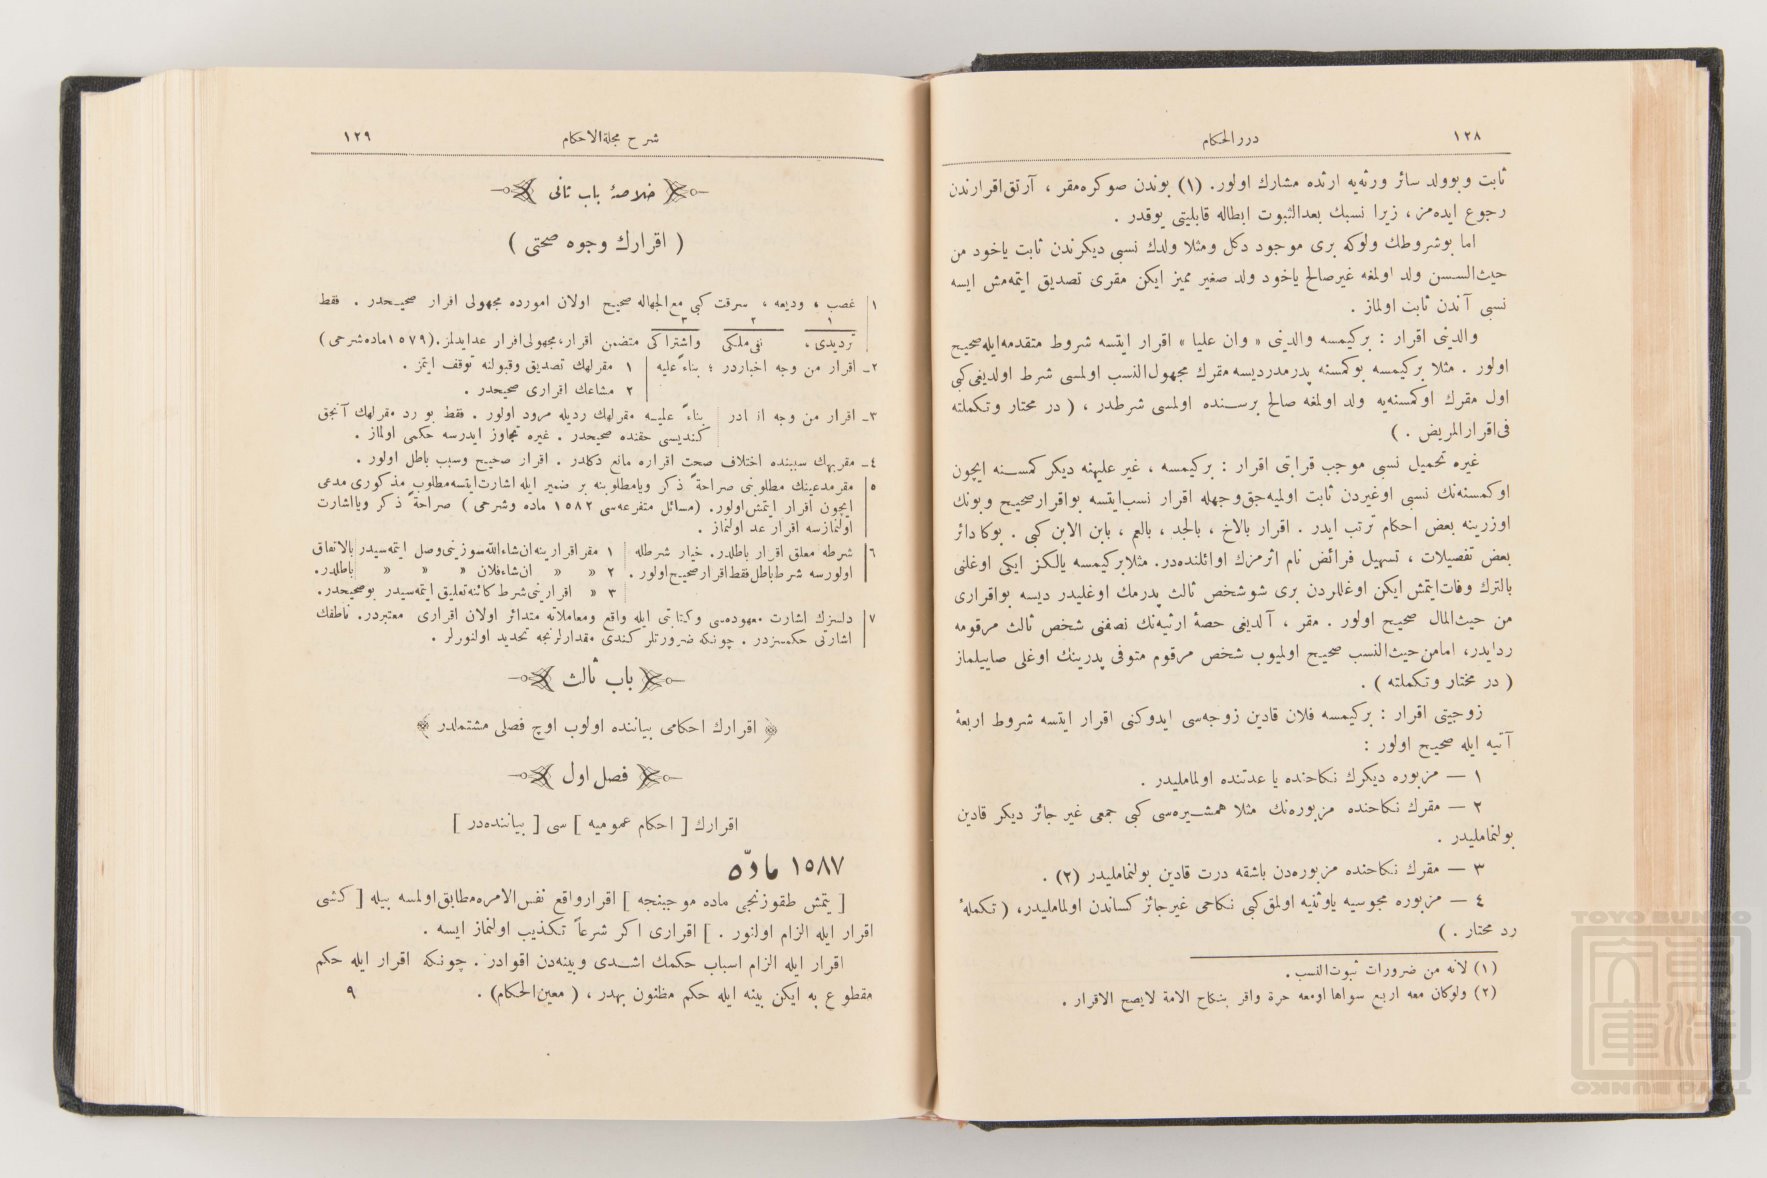 ١٢٨
دررالحكام
ثابت وبوولد سائر ورثه‌يه ارثده مشارك اولور. (١) بوندن صوكره‌مقر ، آرتق‌اقرارندن
رجوع ايده‌مز ، زيرا نسبك بعدالثبوت ابطاله قابليتى يوقدر .
اما بوشروطك ولوكه برى موجود دكل ومثلا ولدك نسبى ديكرندن ثابت ياخود من
حيث‌السـسن ولد اولمغه غيرصالح ياخود ولد صغير مميز ايكن مقرى تصديق ايتمه‌مش ايسه
نسبى آندن ثابت اولماز .
والدينى اقرار : بركيمسه والدينى « وان عليا » اقرار ايتسه شروط متقدمه‌ايله‌صحيح
اولور . مثلا بركيمسه بوكمسنه پدرمدرديسه مقرك مجهول‌النسب اولمسى شرط اولديغى‌كبى
اول مقرك اوكمسنه‌يه ولد اولمغه صالح برسـنده اولمسى شرطدر ، ( در مختار وتكملته
فى‌اقرارالمريض . )
غيره تحميل نسبى موجب قراتى اقرار : بركيمسه ، غير عليهنه ديكر كمسـنه ايچون
اوكمسنه‌نك نسبى اوغيردن ثابت اوليه‌جق‌وجهله اقرار نسب‌ايتسه بواقرارصحيح وبونك
اوزرينه بعض احكام ترتب ايدر . اقرار بالاخ ، بالجد ، بالعم ، بابن الابن كبى . بوكادائر
بعض تفصيلات ، تسهيل فرائض نام اثرمزك اوائلنده‌در. مثلابركيمسه يالكز ايكى اوغلنى
بالترك وفات‌ايتمش ايكن اوغللردن برى شوشخص ثالث پدرمك اوغليدر ديسه بواقرارى
من حيث‌المال صحيح اولور . مقر ، آلديغى حصۀ ارثيه‌نك نصفنى شخص ثالث مرقومه
ردايدر، امامن‌حيث‌النسب صحيح اولميوب شخص مرقوم متوفى پدرينك اوغلى صاييلماز
( در مختار وتكملته ) .
زوجيتى اقرار : بركيمسه فلان قادين زوجه‌سى ايدوكنى اقرار ايتسه شروط اربعۀ
آتيه ايله صحيح اولور :
١ — مزبوره ديكرك نكاحنده يا عدتنده اولمامليدر .
٢ — مقرك نكاحنده مزبوره‌نك مثلا همشـيره‌سى كبى جمعى غير جائز ديكر قادين
بولنمامليدر .
٣ — مقرك نكاحنده مزبوره‌دن باشقه درت قادين بولنمامليدر (٢) .
٤ — مزبوره مجوسيه ياوثنيه اولمق‌كبى نكاحى غيرجائز كساندن اولمامليدر، ( تكملۀ
رد محتار . )
(١) لانه من ضرورات ثبوت‌النسب .
(٢) ولوكان معه اربع سواها اومعه حرة واقر بنكاح الامة لايصح الاقرار .
شرح مجلةالاحكام
١٢٩
خلاصۀ باب ثانى
( اقرارك وجوه صحتى )
١ غصب ، وديعه ، سرقت كبى مع‌الجهاله صحيح اولان امورده مجهولى اقرار صحيـحدر . فقط
١ ٢ ٣
ترديدى، نفى‌ملكى واشتراكى متضمن اقرار،مجهولى‌اقرار عدايدلمز.(١٥٧٩ماده‌شرحى)
٢ـ اقرار من وجه اخباردر ؛ بناءً عليه ١ مقرلهك تصديق وقبولنه توقف ايتمز .
٢ مشاعك اقرارى صحيحدر .
٣ـ اقرار من وجه ا‌ﻧ‌ﺸ‌ادر بناءً عليـه مقرلهك رديله مردود اولور . فقط بو رد مقرلهك آنجق
كنديسى حقنده صحيحدر . غيره تجاوز ايدرسه حكمى اولماز .
٤ـ مقربهك سببنده اختلاف صحت اقراره مانع دكلدر . اقرار صحيح وسبب باطل اولور .
٥ مقرمدعينك مطلوبنى صراحةً ذكر ويامطلوبنه بر ضمير ايله اشارت‌ايتسه‌مطلوب مذكورى مدعى
ايچون اقرار ايتمش‌اولور. (مسائل متفرعه‌سى ١٥٨٢ ماده وشرحى ) صراحةً ذكر ويااشارت
اولنمازسه اقرار عد اولنماز .
٦ شرطه معلق اقرار باطلدر. خيار شرطله ١ مقراقرارينه‌ان‌شاءالله‌سوزينى‌وصل ايتمه‌سيدر بالاتفاق
اولورسه شرط‌باطل‌فقط‌اقرارصحيح‌اولور . ٢ « « ان‌شاءفلان « « « باطلدر.
٣ « اقرارينى‌شرط كائنه‌تعليق ايتمه‌سيدر بوصحيحدر.
٧ دلسزك اشارت معهوده‌سى وكتابتى ايله واقع ومعاملاته متدائر اولان اقرارى معتبردر. ناطقك
اشارتى حكمسزدر . چونكه ضرورتلر كندى مقدارلرنجه تحديد اولنورلر .
باب ثالث
﴿ اقرارك احكامى بياننده اولوب اوچ فصلى مشتملدر ﴾
فصل اول
اقرارك [ احكام عموميه ] سى [ بياننده‌در ]
١٥٨٧ مادّه
[ يتمش طقوزنجى ماده موجبنجه ] اقرارواقع نفس‌الامره‌مطابق‌اولمسه بيله [ كشى
اقرار ايله الزام اولنور . ] اقرارى اكر شرعاً تكذيب اولنماز ايسه .
اقرار ايله الزام اسباب حكمك اشـدى وبينه‌دن اقوادر . چونكه اقرار ايله حكم
مقطوع به ايكن بينه ايله حكم مظنون بهدر ، ( معين‌الحكام) .
٩
TOYO BUNKO
TOYO BUNKO